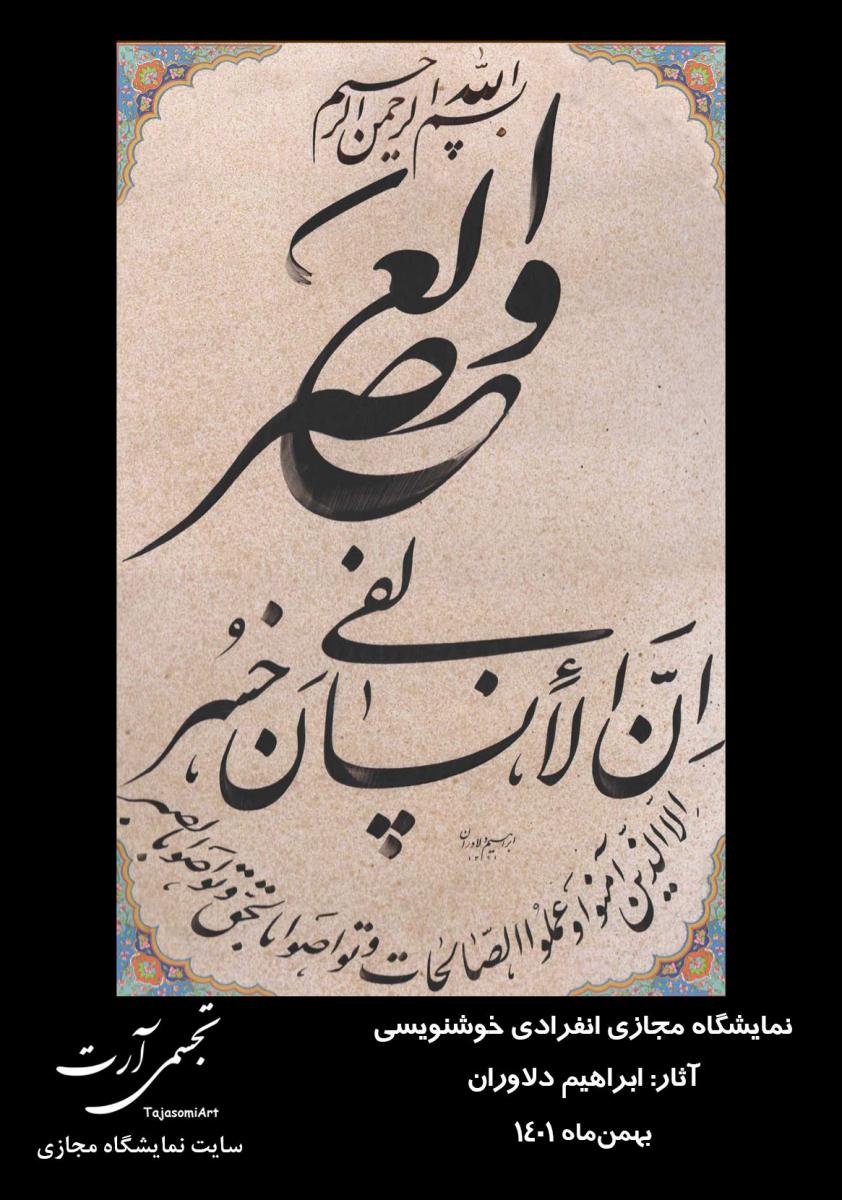 بسم الله الرحمن الرحیم
والعصر
اِنَّ الأنسانَ لفی خسُر
الا الذین آمنوا و عملوا الصالحات و تواصوا بالحق و تواصوا بالصبر
ابراهیم دلاوران
نمایشگاه مجازی انفرادی خوشنویسی
آثار: ابراهیم دلاوران
بهمن‌ماه ۱٤۰۱
تجسمی آرت
TajasomiArt
سایت نمایشگاه مجازی